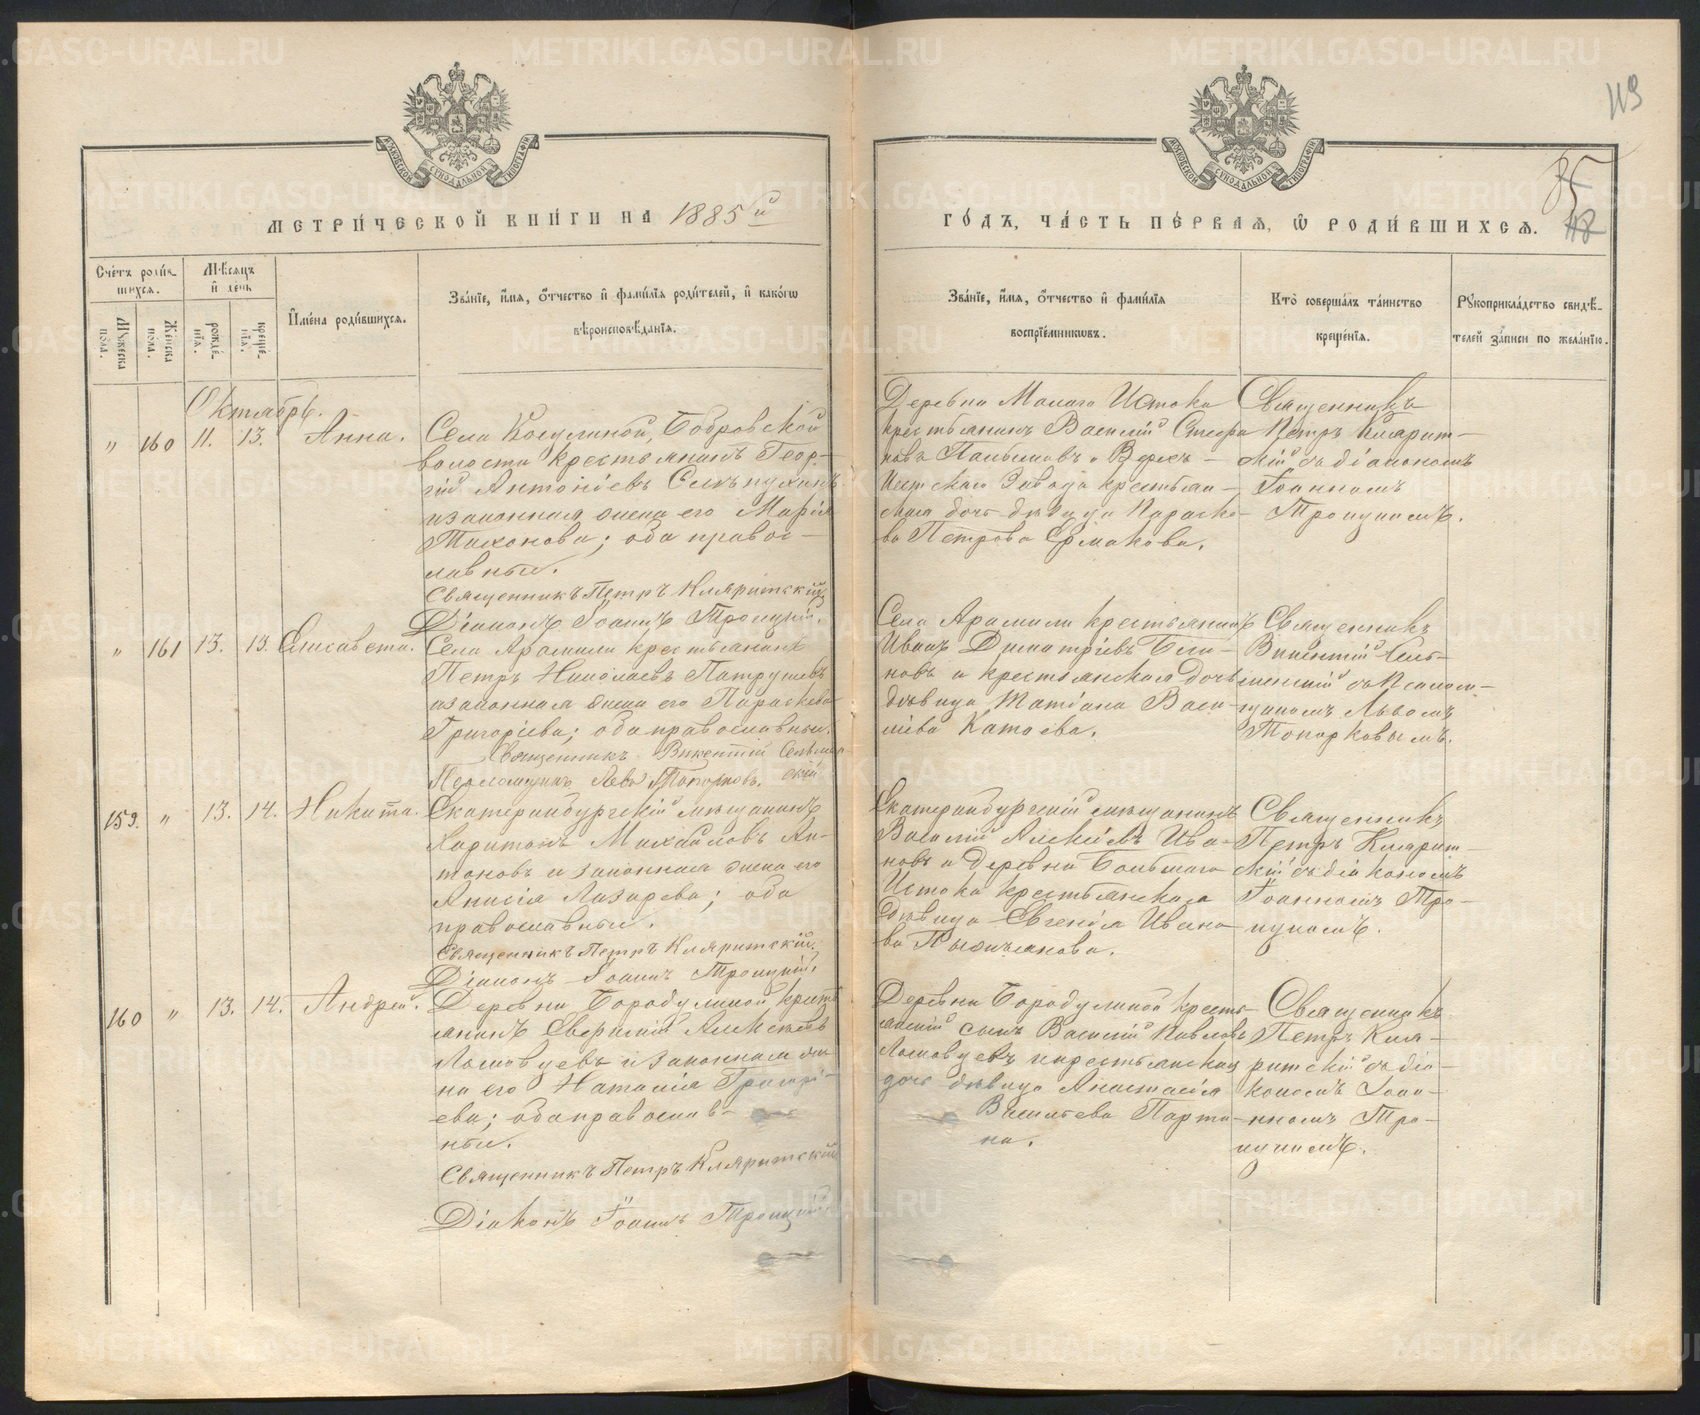 113
85
118
МЕТРИ́ЧЕСКОЙ КНИ́ГИ НА 1885й
Сче́тъ роди́вшихся.
Мѣ́сяцъ и҆ де́нь
Мꙋ́жеска по́ла.
Же́нска по́ла.
рожде́нїѧ.
креще́нїѧ.
И҆мена̀ роди́вшихся.
Зва́нїе, и҆́мѧ, ѻ҆́тчество и҆ фами́лїѧ роди́телей, и҆ како́гѡ
вѣроисповѣ́данїѧ.
Октябрь.
" 160 11. 13. Анна.
Села Косулиной, Бобровской
волости крестьянинъ Геор-
гій Антоніевъ
и законная жена его Марія
Тихонова; оба правос-
лавные.
Священникъ Петръ Кляритскій
Діаконъ Іоаннъ Троицкій.
" 161 13. 13. Елисавета.
Села Арамили крестьянинъ
Петръ Николаевъ Патрушевъ
и законная жена его Параскева
Григоріева; оба православные.
Священникъ Викентій Сельмен
скій
Псаломщикъ Левъ Топорковъ.
159. " 13. 14. Никита.
Екатеринбургскій мѣщанинъ
Харитонъ Михайловъ Ан-
тоновъ и законная жена его
Анисія Лазарева; оба
православные.
Священникъ Петръ Кляритскій.
Діаконъ Іоаннъ Троицкій.
160 " 13. 14. Андрей.
Деревни Бородулиной кресть
янинъ Сверкній Алексѣевъ
Ломовцевъ и законная же
на его Наталія Григорі-
ева; оба православ-
ные.
Священникъ Петръ Кляритскій
Діаконъ Іоаннъ Троицкій.
ГО́ДЪ, ЧА́СТЬ ПЕ́РВАѦ, Ѡ҆ РОДИ́ВШИХСѦ.
Зва́нїе, и҆́мѧ, ѻ҆́тчество и҆ фами́лїѧ
воспрїе́мникѡвъ.
Кто̀ соверша́лъ та́инство
креще́нїѧ.
Рꙋкоприкла́дство свидѣ́-
телей за́писи по жела́нїю.
Деревни Малаго Истока
крестьянинъ Василій Стефа
новъ Пальвиковъ и Верхъ-
Исетскаго Завода крестьян-
ская дочь дѣвица Параске-
ва Петрова Ермакова.
Священникъ
Петръ Клярит-
скій съ діакономъ
Іоанномъ
Троицкимъ.
Села Арамили крестьянинъ
Иванъ Димитріевъ Бели-
новъ и крестьянская дочь
дѣвица Татіана Васи-
ліева Катаева.
Священникъ
Викентій Сель-
менскій съ псалом-
щикомъ Львомъ
Топорковымъ.
Екатеринбургскій мѣщанинъ
Василій Алексѣевъ Ива-
новъ и деревни Большаго
Истока крестьянская
дѣвица Евгенія Ивано-
ва
Священникъ
Петръ Клярит-
скій съ діакономъ
Іоанномъ Тро-
ицкимъ.
Деревни Бородулиной кресть-
янскій сынъ Василій Павловъ
Ломовцевъ и крестьянская
дочь дѣвица Анастасія
Васильева Парти-
на.
Священникъ
Петръ Кля-
ритскій съ діа-
кономъ Іоан-
номъ Тро-
ицкимъ.
METRIKI.GASO-URAL.RU